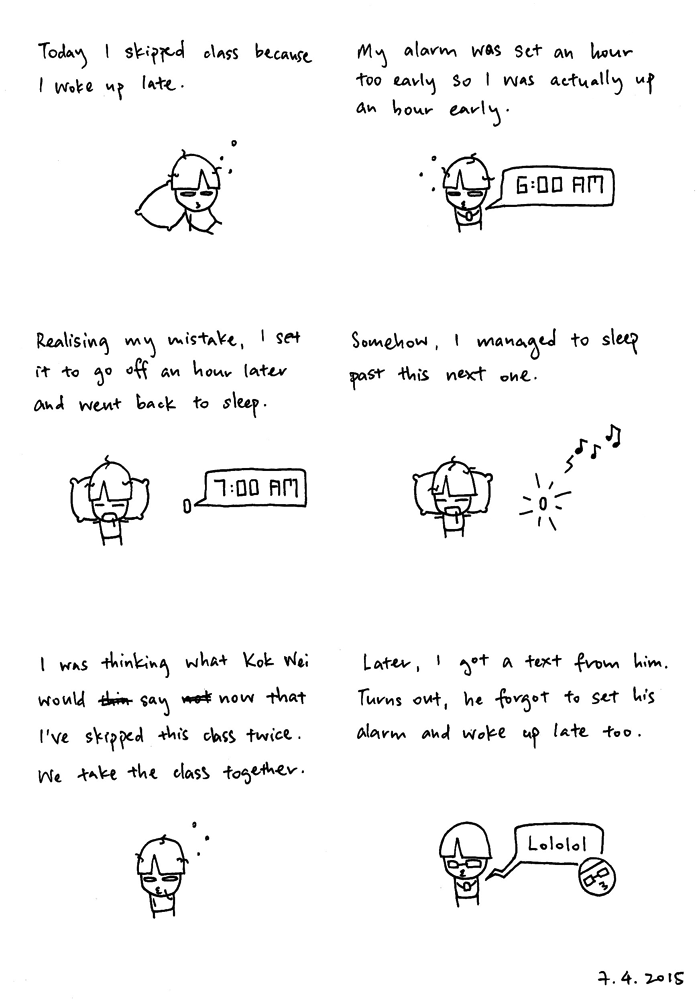 Today I skipped class because
I woke up late.
My alarm was set an hour
too early so I was actually up
an hour early.
6:00 AM
Realising my mistake, I set
it to go off an hour later
and went back to sleep.
7:00 AM
Somehow, I managed to sleep
past this next one.
I was thinking what Kok Wei
would thin say not now that
I've skipped this class twice.
We take the class together.
Later, I got a text from him.
Turns out, he forgot to set his
alarm and woke up late too.
Lololol
7.4.2015